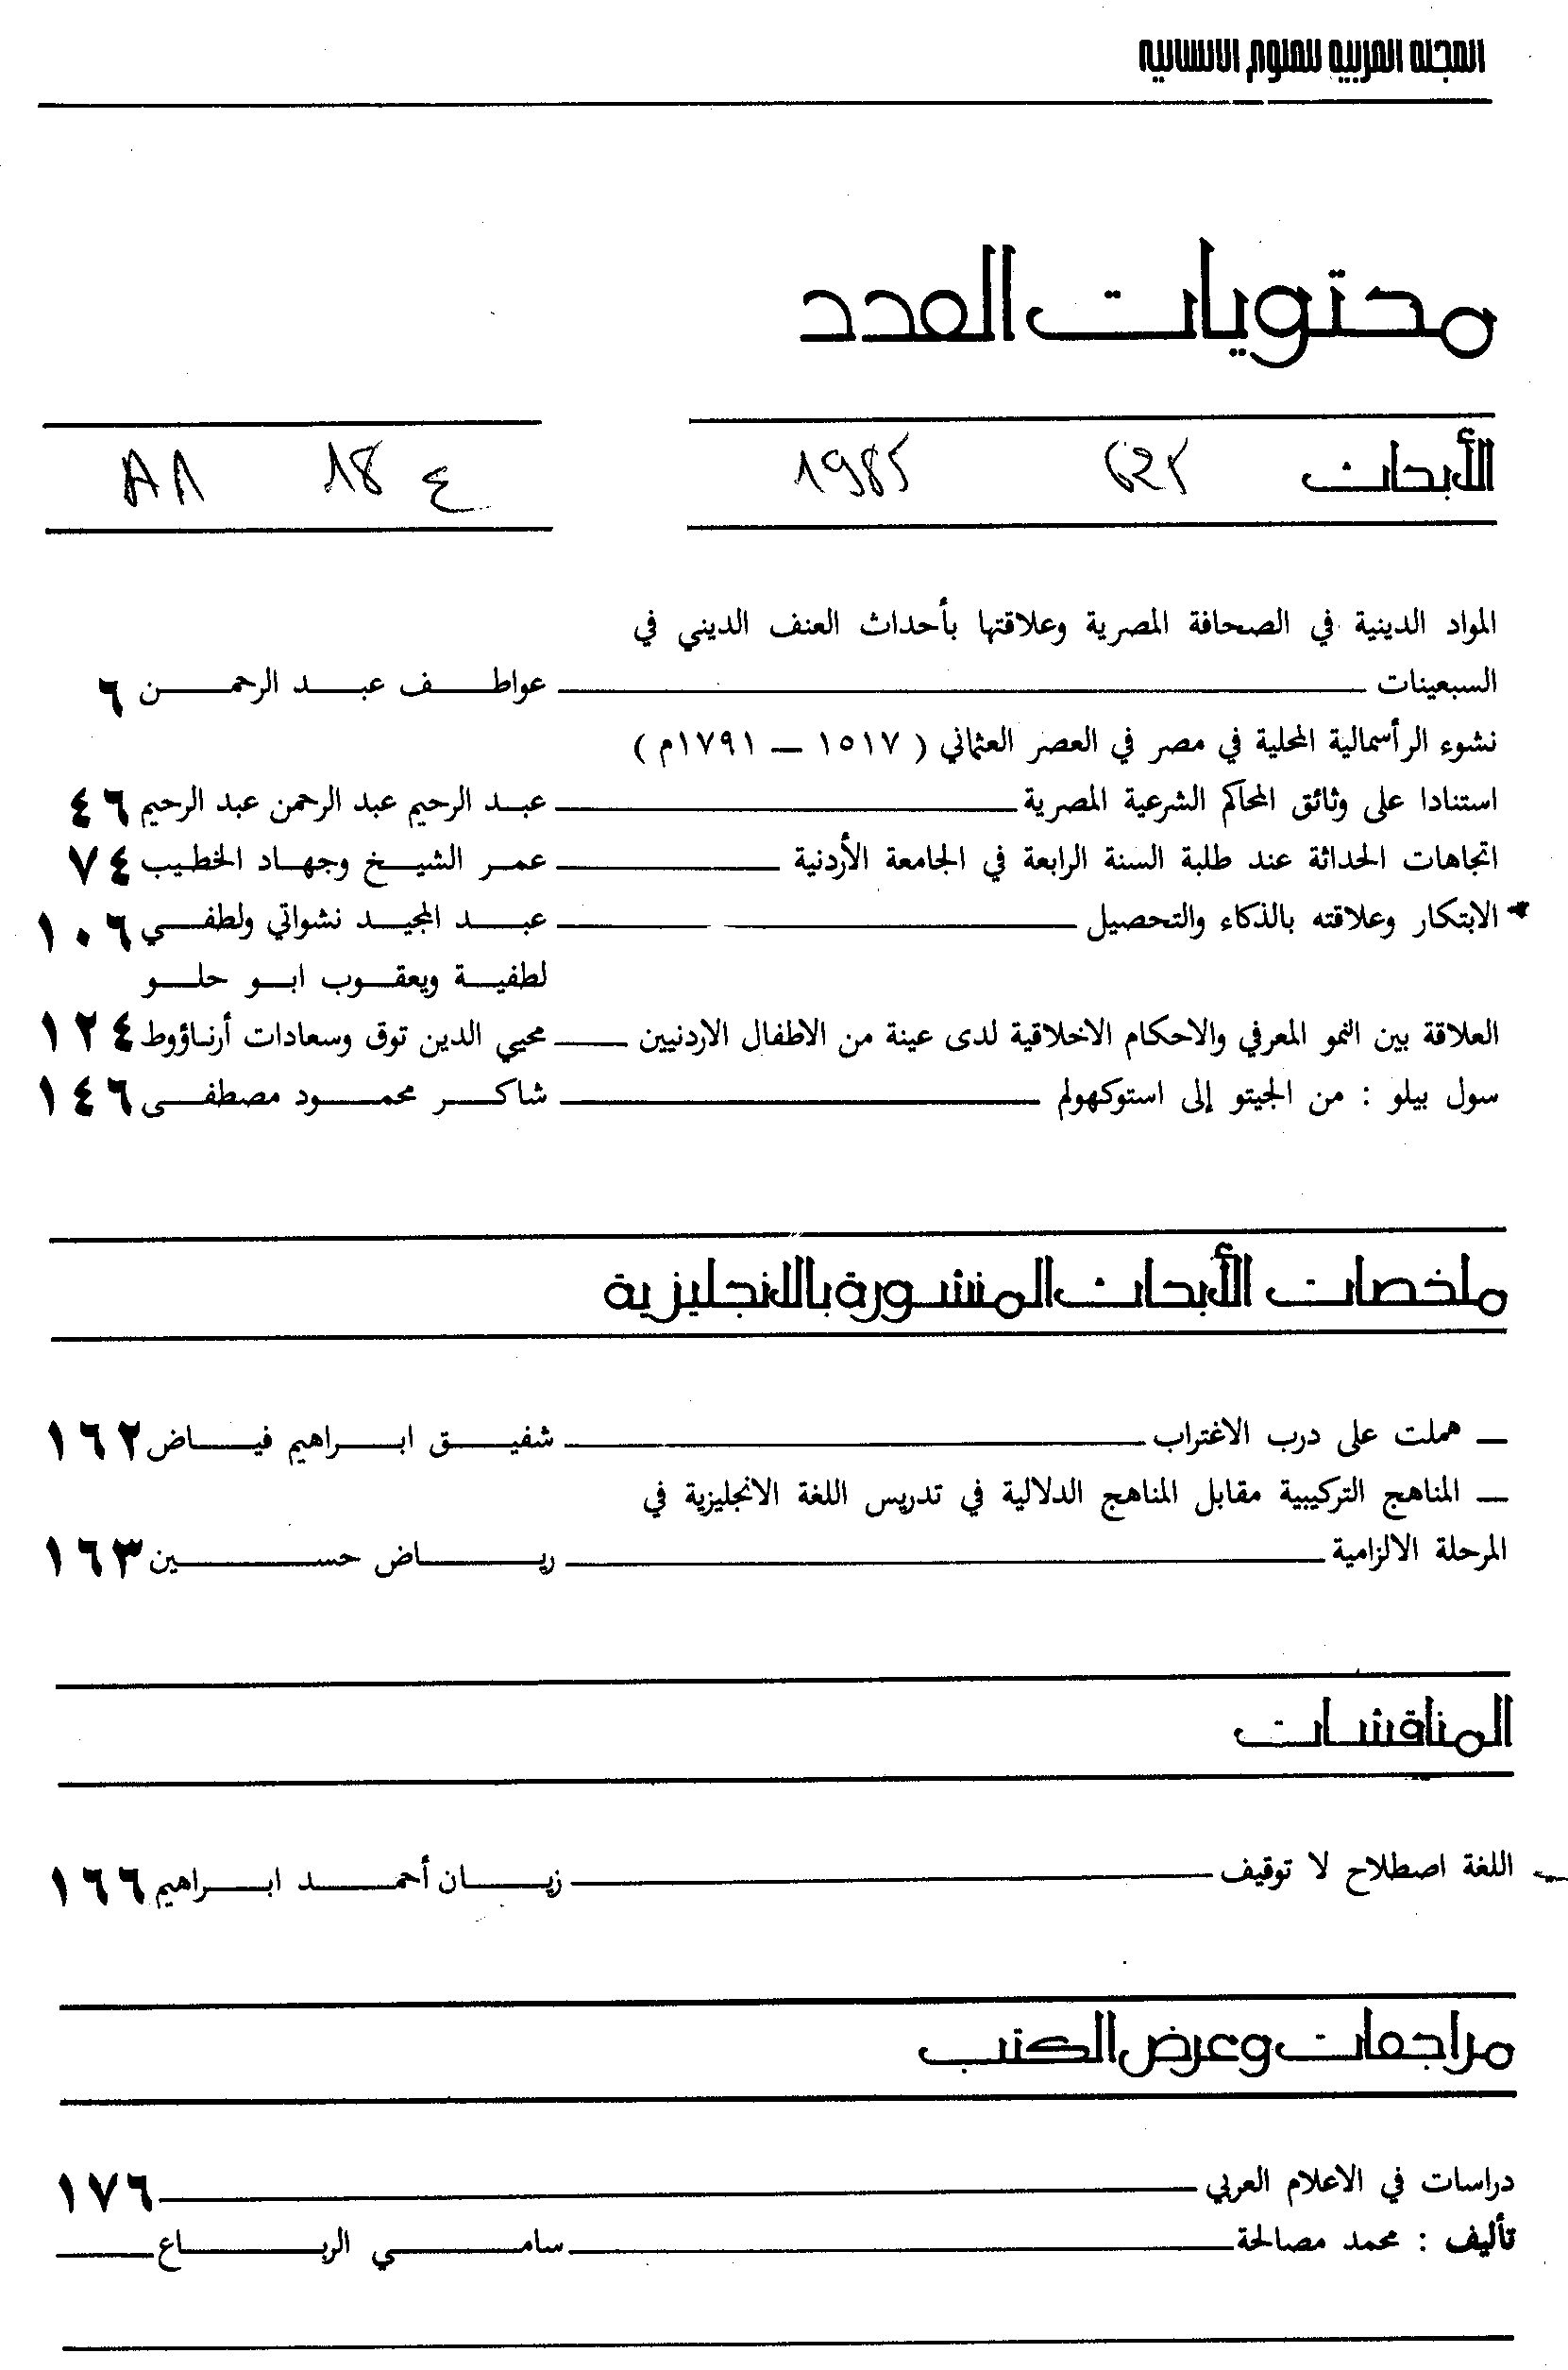 المجلة العربية للعلوم الانسانية
محتويات العدد
الأبحاث 1985 ع 18
المواد الدينية في الصحافة المصرية وعلاقتها بأحداث العنف الديني في
السبعينات عواطف عبد الرحمن ٦
نشوء الرأسمالية المحلية في مصر في العصر العثماني ( ١٥١٧ — ١٧٩١م )
استنادا على وثائق المحاكم الشرعية المصرية عبد الرحيم عبد الرحمن عبد الرحيم ٤٦
اتجاهات الحداثة عند طلبة السنة الرابعة في الجامعة الأردنية عمر الشيخ وجهاد الخطيب ٧٤
الابتكار وعلاقته بالذكاء والتحصيل عبد المجيد نشواتي ولطفي ١٠٦
لطفية ويعقوب ابو حلو
العلاقة بين النمو المعرفي والاحكام الاخلاقية لدى عينة من الاطفال الاردنيين محيي الدين توق وسعادات أرناؤوط ١٢٤
سول بيلو : من الجيتو إلى استوكهولم شاكر محمود مصطفى ١٤٦
ملخصات الأبحاث المنشورة باللانجليزية
— هملت على درب الاغتراب شفيق ابراهيم فياض ١٦٢
— المناهج التركيبية مقابل المناهج الدلالية في تدريس اللغة الانجليزية في
المرحلة الالزامية رياض حسين ١٦٣
المناقشات
اللغة اصطلاح لا توقيف زيان أحمد ابراهيم ١٦٦
مراجعات وعرض الكتب
دراسات في الاعلام العربي ١٧٦
تأليف : محمد مصالحة سامي الرباع